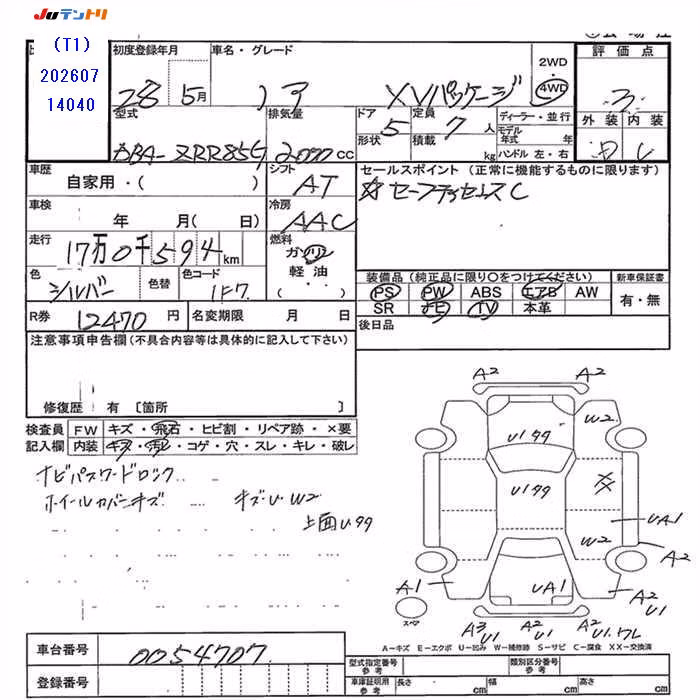 JUテントリ
(T1)
202607
14040
初度登録年月
車名・グレード
2WD
4WD
評価点
28 5月
ノア XVパッケージ
3
型式
排気量
ドア
形状
定員
積載
ディーラー・並行
モデル
年式 年
ハンドル 左・右
外装 内装
DBA-ZRR85G
2000 CC
5
7 人
kg
C
車歴
自家用・( )
シフト
AT
セールスポイント (正常に機能するものに限ります)
☆セーフティセンスC
車検
年 月( 日)
冷房
AAC
走行
17万0千594 km
燃料
ガソリン
軽油
( ・・ )
色
シルバー
色替
色コード
1F7
装備品 (純正品に限り〇をつけてください)
新車保証書
PS PW ABS エアB AW
有・無
SR ナビ TV 本革
R券 12470 円
名変期限 月 日
後日品
注意事項申告欄(不具合内容等は具体的に記入して下さい)
修復歴 有 〔箇所 〕
検査員
記入欄
FW キズ・飛石・ヒビ割・リペア跡・×要
内装 キズ・汚レ・コゲ・穴・スレ・キレ・破レ
ナビパスワードロック
ホイールカバーキズ
キズU W2
上面U99
A2 A2
W2
U199
U199
XX
UA1
W2
A2
A1
UA1
A2
U1
スペア
A3
U1
A2
U1
A2
U1.ワレ
A-キズ E-エクボ U-凹み W-補修跡 S-サビ C-腐食 XX-交換済
車台番号 0054707
登録番号
型式指定番号
参考
類別区分番号
参考
車庫証明用
参考
長さ cm 幅 cm 高さ cm